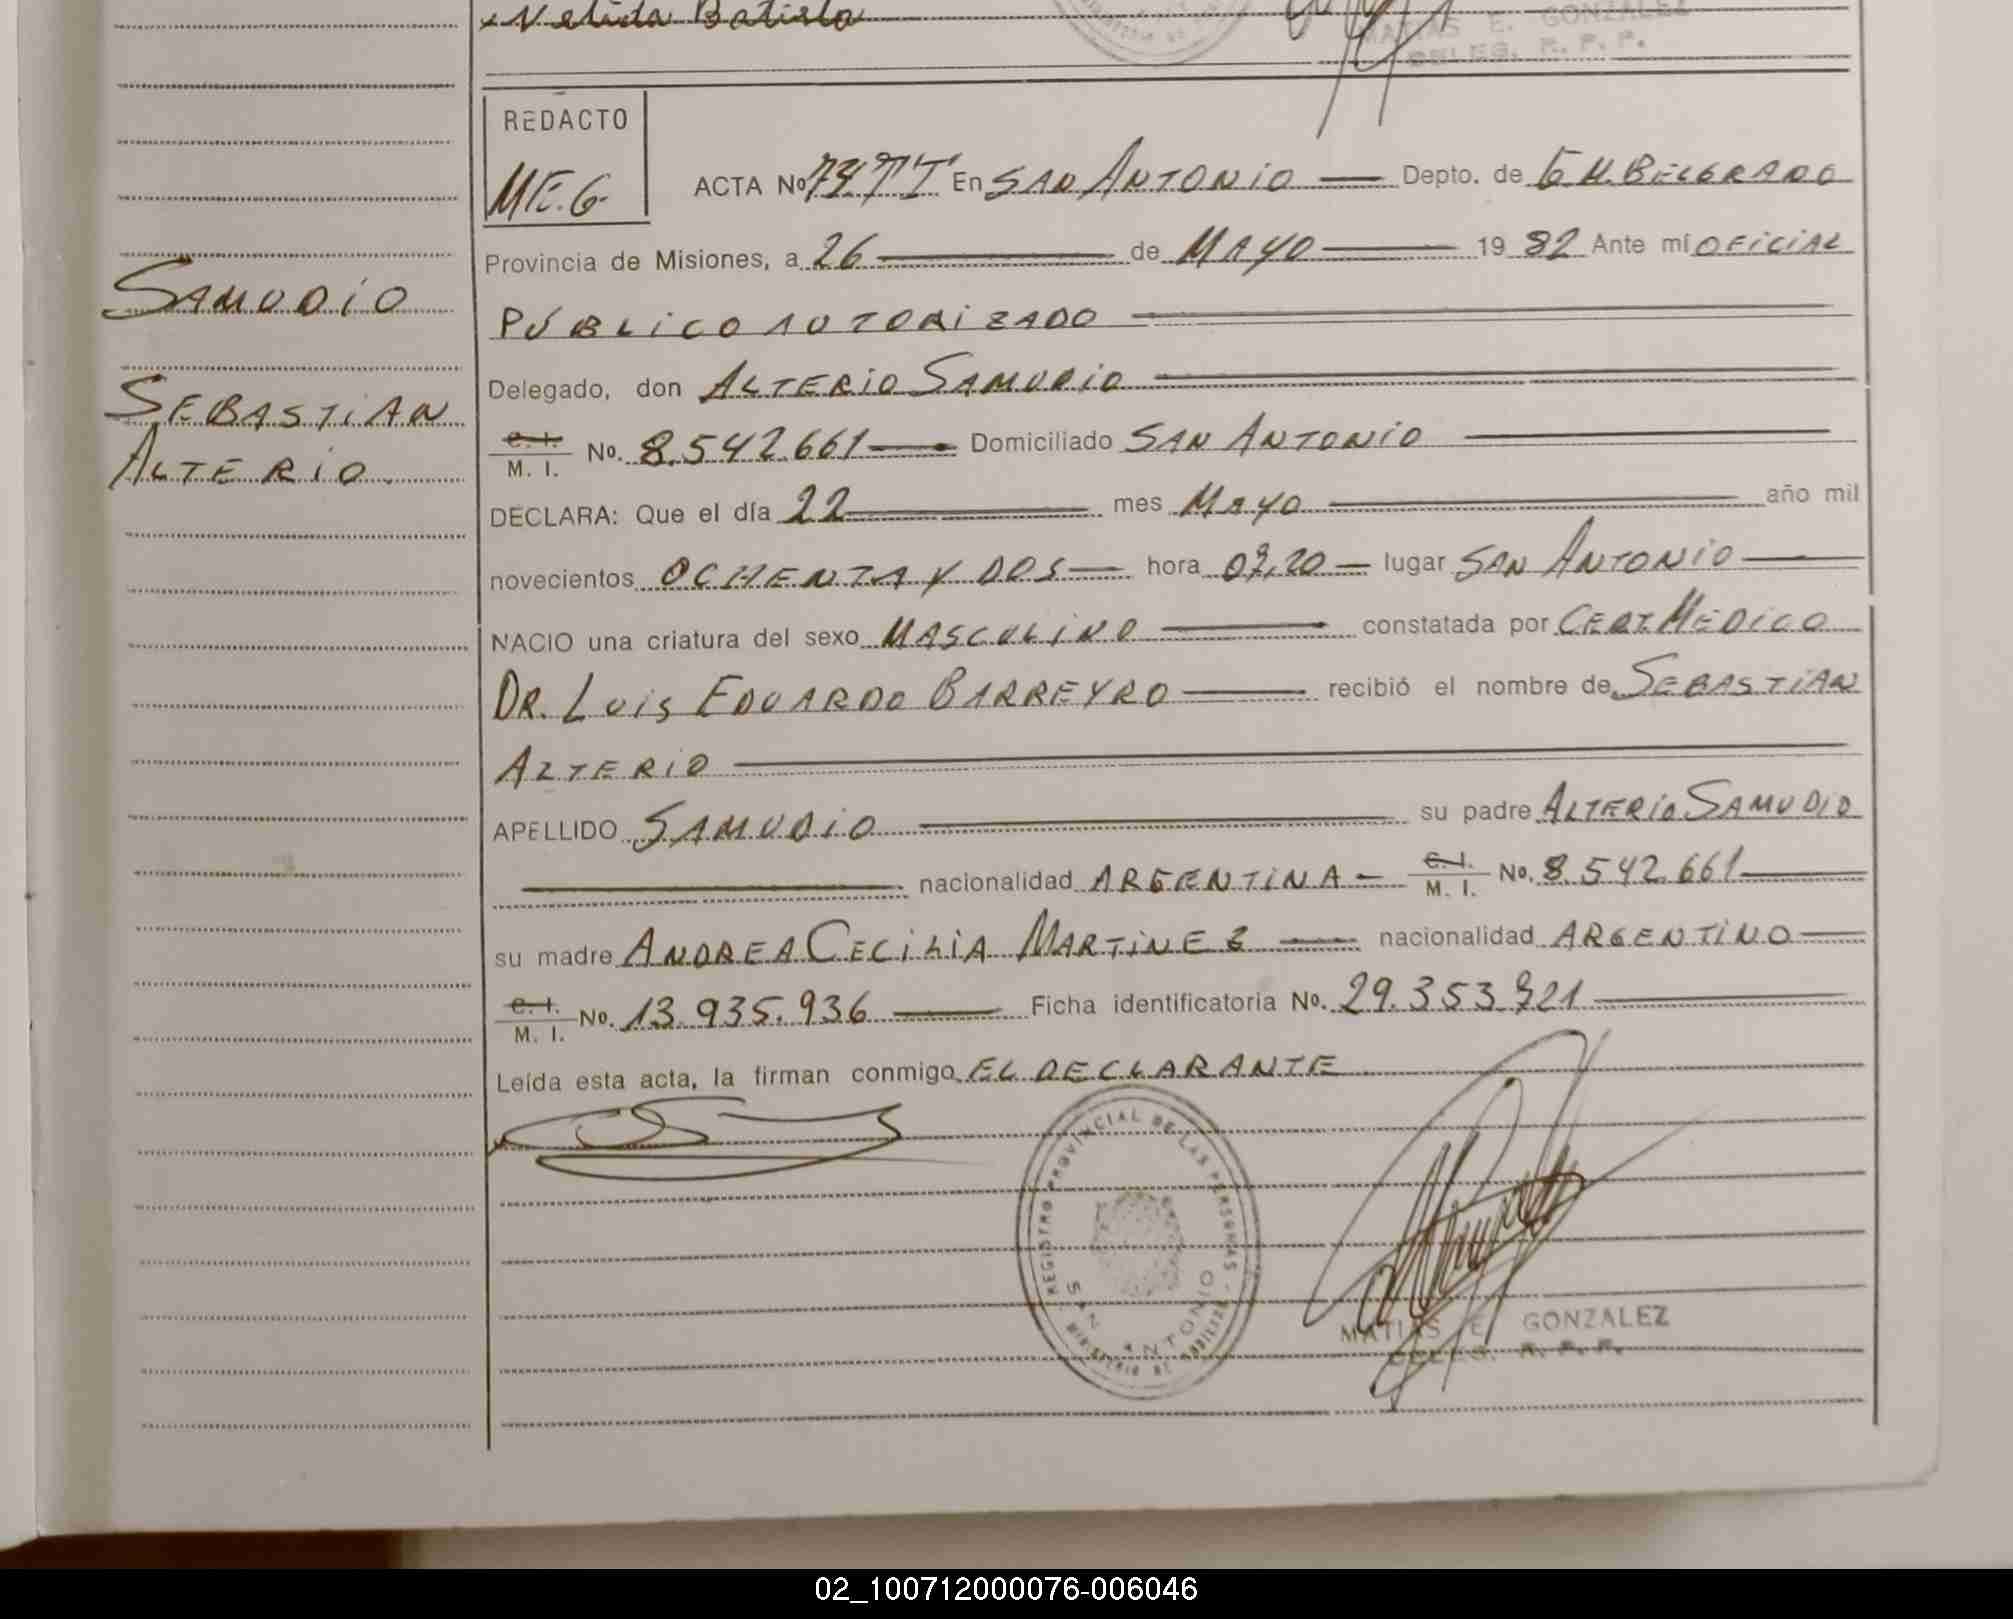 Nelida Batista
MATIAS E. GONZALEZ
DELEG. R. P. P.
REDACTO
M.E.G.
ACTA No 74 TT En SAN ANTONIO — Depto. de G M. BELGRADO
Provincia de Misiones, a 26 — de MAYO — 19 82 Ante mí OFICIAL
PÚBLICO AUTORIZADO —
Delegado, don ALTERIO SAMUDIO —
C. I. / M. I. No. 8.542.661 — Domiciliado SAN ANTONIO —
DECLARA: Que el día 22 — mes MAYO — año mil
novecientos OCHENTA Y DOS — hora 07,20 — lugar SAN ANTONIO —
NACIO una criatura del sexo MASCULINO — constatada por CERT. MEDICO
DR. LUIS EDUARDO BARREYRO — recibió el nombre de SEBASTIAN
ALTERIO —
APELLIDO SAMUDIO — su padre ALTERIO SAMUDIO
— nacionalidad ARGENTINA — C. I. / M. I. No. 8.542.661 —
su madre ANDREA CECILIA MARTINEZ — nacionalidad ARGENTINO —
C. I. / M. I. No. 13.935.936 — Ficha identificatoria No. 29.353.921 —
Leída esta acta, la firman conmigo EL DECLARANTE
REGISTRO PROVINCIAL DE LAS PERSONAS
SAN ANTONIO
MATIAS E. GONZALEZ
DELEG. R. P. P.
SAMUDIO
SEBASTIAN
ALTERIO
02_100712000076-006046